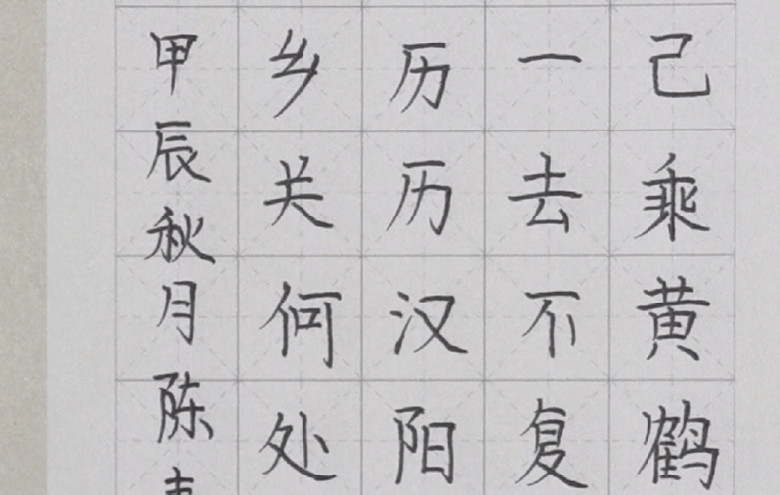 己乘黄鹤
一去不复
历历汉阳
乡关何处
甲辰秋月陈